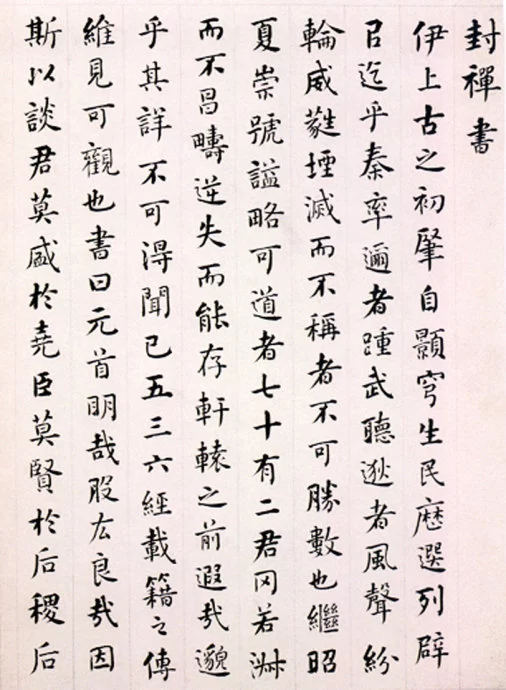 封禪書
伊上古之初肇自顥穹生民厯選列辟
㠯迄乎秦率邇者踵武聽逖者風聲紛
輪威蕤堙滅而不稱者不可勝數也繼昭
夏崇號謚略可道者七十有二君罔若淑
而不昌疇逆失而能存軒轅之前遐哉邈
乎其詳不可淂聞已五三六經載籍之傳
維見可觀也書曰元首眀哉股厷良哉因
斯以談君莫盛於堯臣莫賢於后稷后